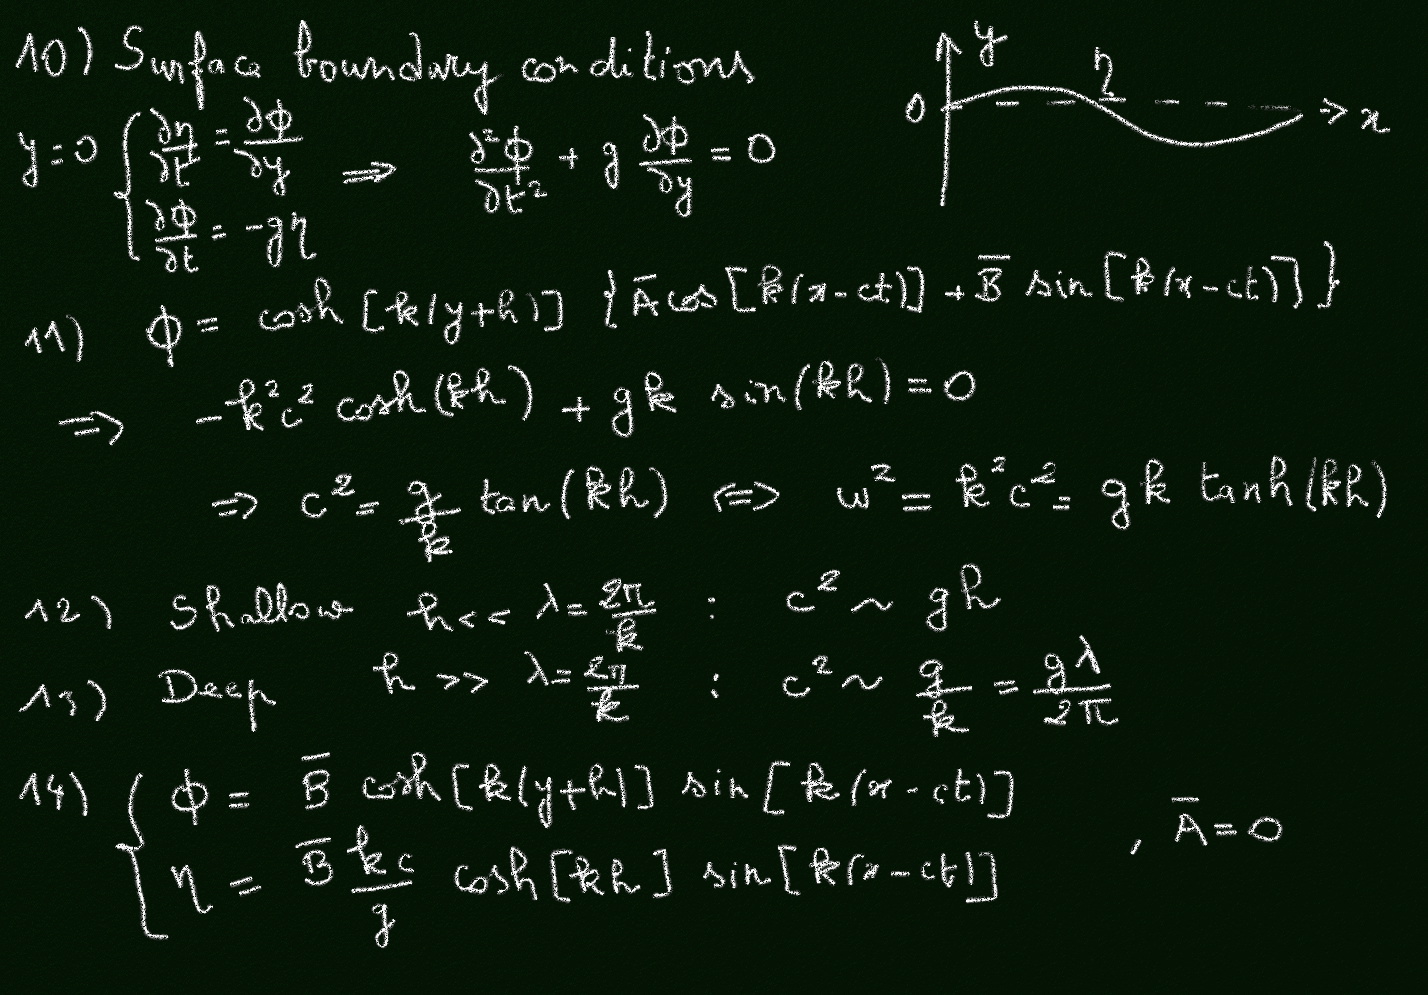 10) Surface boundary conditions
y
η
0
x
y=0 { ∂η/∂t = ∂ϕ/∂y ⇒ ∂²ϕ/∂t² + g ∂ϕ/∂y = 0
∂ϕ/∂t = -gη
11) ϕ = cosh [k(y+h)] { A̅ cos[k(x-ct)] + B̅ sin [k(x-ct)] }
⇒ -k²c² cosh(kh) + gk sin(kh) = 0
⇒ c² = g/k tan(kh) ⇔ w² = k²c² = gk tanh(kh)
12) Shallow h << λ = 2π/k : c² ~ gh
13) Deep h >> λ = 2π/k : c² ~ g/k = gλ/2π
14) { ϕ = B̅ cosh[k(y+h)] sin[k(x-ct)]
η = B̅ kc/g cosh[kh] sin[k(x-ct)] , A̅ = 0